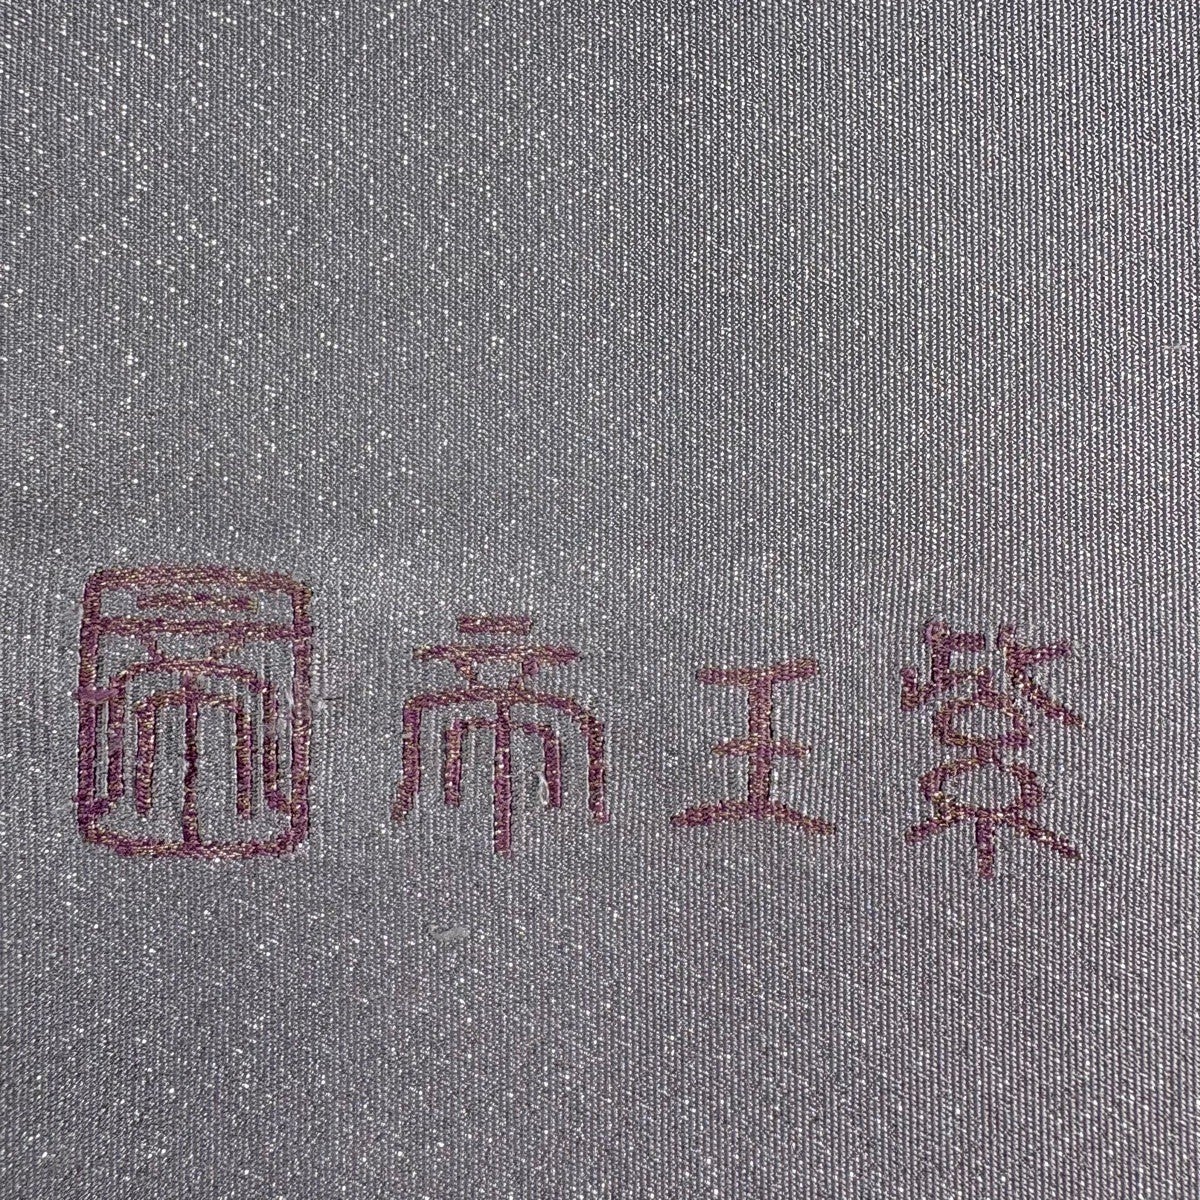 帝 帝王紫